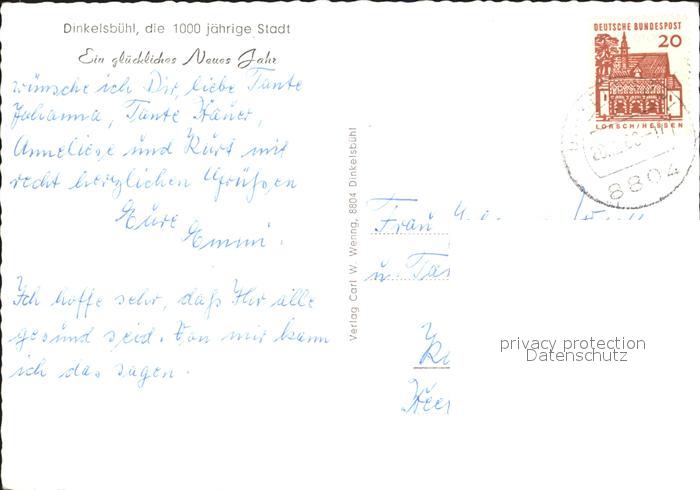 Dinkelsbühl, die 1000 jährige Stadt
Ein glückliches Neues Jahr
wünsche ich Dir, liebe Tante
Johanna, Tante
Anneliese und Kurt mit
recht herzlichen Grüßen
Eure
Emmi.
Ich hoffe sehr, daß Ihr alle
gesund seid. Von mir kann
ich das sagen.
Verlag Carl W. Wenng, 8804 Dinkelsbühl
DEUTSCHE BUNDESPOST
20
LORSCH/HESSEN
8804
Frau
u. Tan
privacy protection
Datenschutz